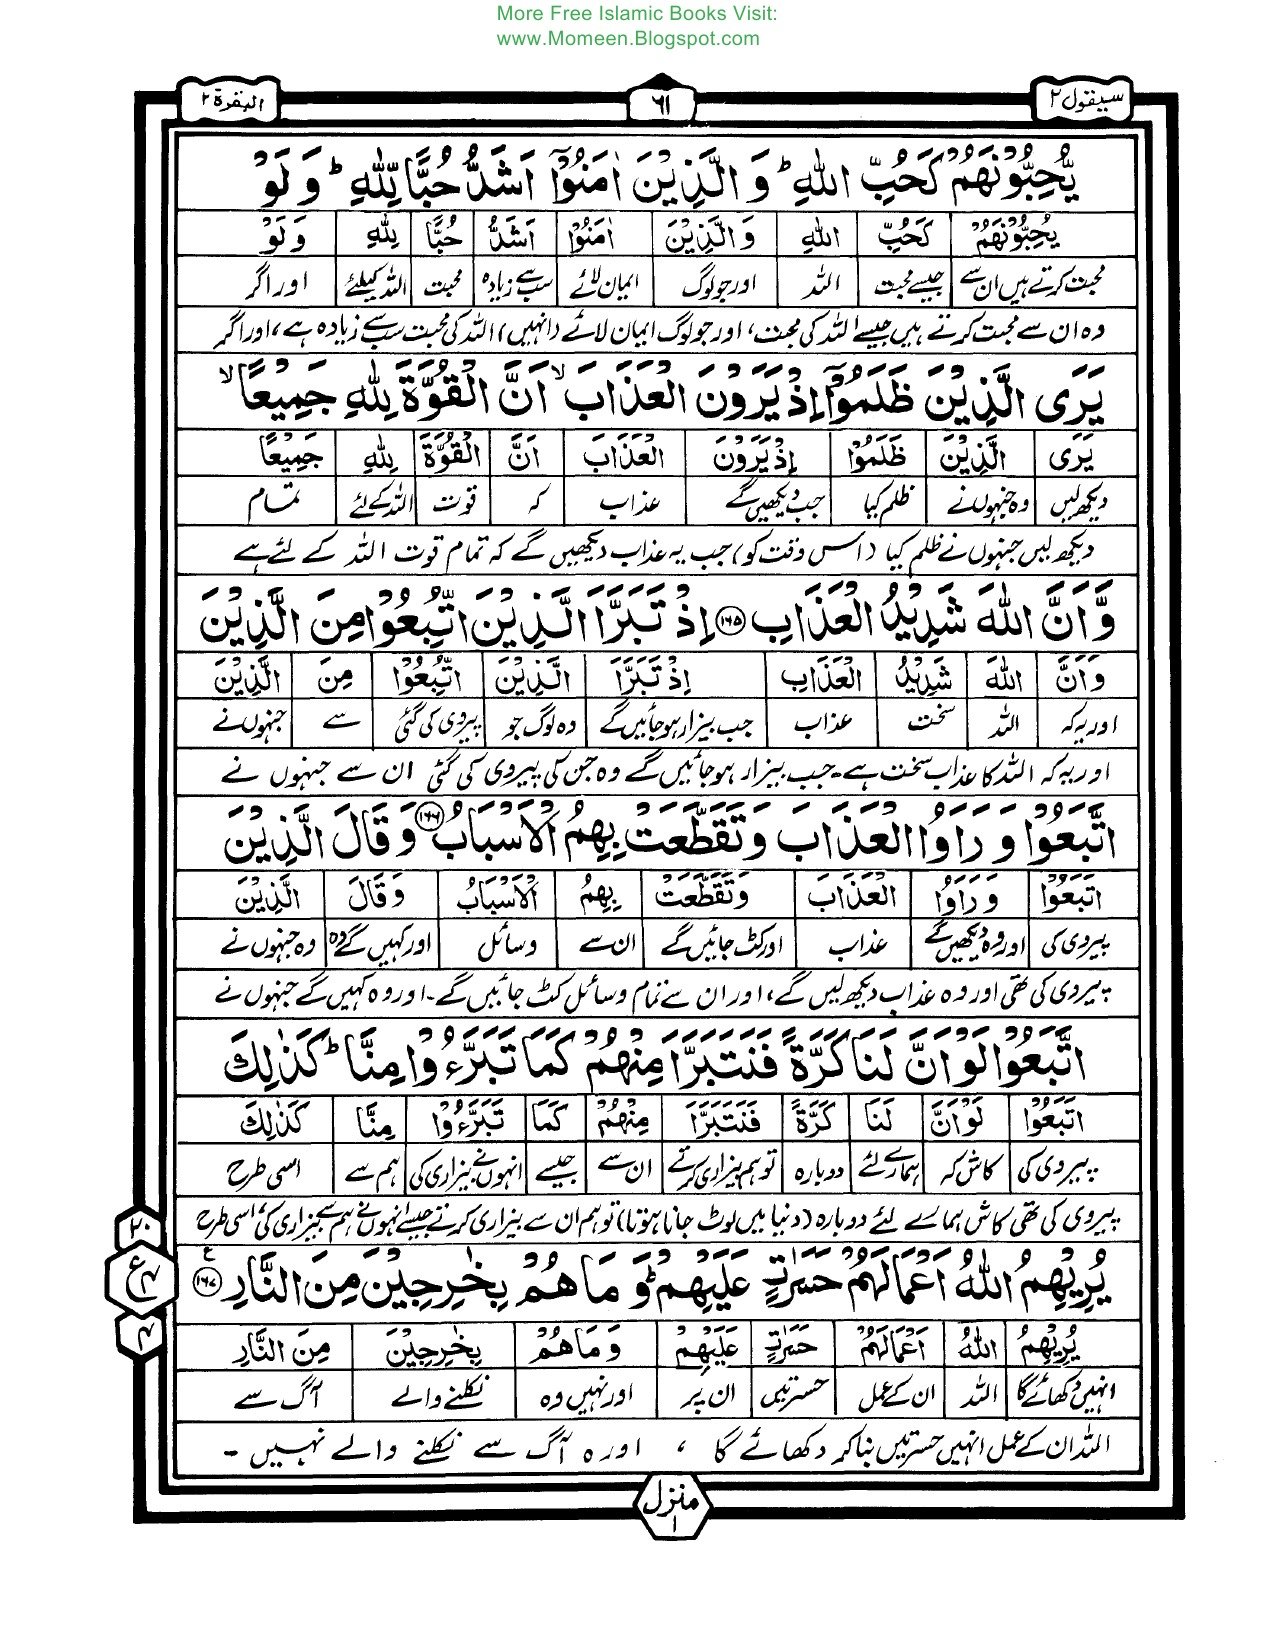 More Free Islamic Books Visit:
www.Momeen.Blogspot.com
سيقول ٢ ٦١ البقرة ٢
يُّحِبُّوْنَهُمْ كَحُبِّ اللّٰهِ ؕ وَ الَّذِيْنَ اٰمَنُوْۤا اَشَدُّ حُبًّا لِّلّٰهِ ؕ وَ لَوْ
يُحِبُّوْنَهُمْ كَحُبِّ اللّٰهِ وَالَّذِيْنَ اٰمَنُوْا اَشَدُّ حُبًّا لِلّٰهِ وَلَوْ
محبت کرتے ہیں ان سے جیسے محبت اللہ اور جو لوگ ایمان لائے سب سے زیادہ محبت اللہ کیلئے اور اگر
وہ ان سے محبت کرتے ہیں جیسے اللہ کی محبت، اور جو لوگ ایمان لائے (انہیں) اللہ کی محبت سب سے زیادہ ہے، اور اگر
يَرَى الَّذِيْنَ ظَلَمُوْۤا اِذْ يَرَوْنَ الْعَذَابَ ۙ اَنَّ الْقُوَّةَ لِلّٰهِ جَمِيْعًا ۙ
يَرَى الَّذِيْنَ ظَلَمُوْا اِذْ يَرَوْنَ الْعَذَابَ اَنَّ الْقُوَّةَ لِلّٰهِ جَمِيْعًا
دیکھ لیں وہ جنہوں نے ظلم کیا جب دیکھیں گے عذاب کہ قوت اللہ کے لئے تمام
دیکھ لیں جنہوں نے ظلم کیا (اس وقت کو) جب یہ عذاب دیکھیں گے کہ تمام قوت اللہ کے لئے ہے
وَّ اَنَّ اللّٰهَ شَدِيْدُ الْعَذَابِ ١٦٥ اِذْ تَبَرَّاَ الَّذِيْنَ اتُّبِعُوْا مِنَ الَّذِيْنَ
وَاَنَّ اللّٰهَ شَدِيْدُ الْعَذَابِ اِذْ تَبَرَّاَ الَّذِيْنَ اتُّبِعُوْا مِنَ الَّذِيْنَ
اور یہ کہ اللہ سخت عذاب جب بیزار ہو جائیں گے وہ لوگ جو پیروی کی گئی سے جنہوں نے
اور یہ کہ اللہ کا عذاب سخت ہے۔ جب بیزار ہو جائیں گے وہ جن کی پیروی کی گئی ان سے جنہوں نے
اتَّبَعُوْا وَ رَاَوُا الْعَذَابَ وَ تَقَطَّعَتْ بِهِمُ الْاَسْبَابُ ١٦٦ وَ قَالَ الَّذِيْنَ
اتَّبَعُوْا وَرَاَوُا الْعَذَابَ وَتَقَطَّعَتْ بِهِمُ الْاَسْبَابُ وَقَالَ الَّذِيْنَ
پیروی کی اور وہ دیکھیں گے عذاب اور کٹ جائیں گے ان سے وسائل اور کہیں گے وہ وہ جنہوں نے
پیروی کی تھی اور وہ عذاب دیکھ لیں گے، اور ان سے تمام وسائل کٹ جائیں گے۔ اور وہ کہیں گے جنہوں نے
اتَّبَعُوْا لَوْ اَنَّ لَنَا كَرَّةً فَنَتَبَرَّاَ مِنْهُمْ كَمَا تَبَرَّءُوْا مِنَّا ؕ كَذٰلِكَ
اتَّبَعُوْا لَوْ اَنَّ لَنَا كَرَّةً فَنَتَبَرَّاَ مِنْهُمْ كَمَا تَبَرَّءُوْا مِنَّا كَذٰلِكَ
پیروی کی کاش کہ ہمارے لئے دوبارہ تو ہم بیزاری کرتے ان سے جیسے انہوں نے بیزاری کی ہم سے اسی طرح
پیروی کی تھی کاش ہمارے لئے دوبارہ (دنیا میں لوٹ جانا ہوتا) تو ہم ان سے بیزاری کرتے جیسے انہوں نے ہم سے بیزاری کی، اسی طرح
يُرِيْهِمُ اللّٰهُ اَعْمَالَهُمْ حَسَرٰتٍ عَلَيْهِمْ ؕ وَ مَا هُمْ بِخٰرِجِيْنَ مِنَ النَّارِ ١٦٧ ع
يُرِيْهِمُ اللّٰهُ اَعْمَالَهُمْ حَسَرٰتٍ عَلَيْهِمْ وَمَا هُمْ بِخٰرِجِيْنَ مِنَ النَّارِ
انہیں دکھائے گا اللہ ان کے عمل حسرتیں ان پر اور نہیں وہ نکلنے والے آگ سے
اللہ ان کے عمل انہیں حسرتیں بنا کر دکھائے گا ، اور وہ آگ سے نکلنے والے نہیں ۔
٢٠
ع ٤
٤
منزل ١